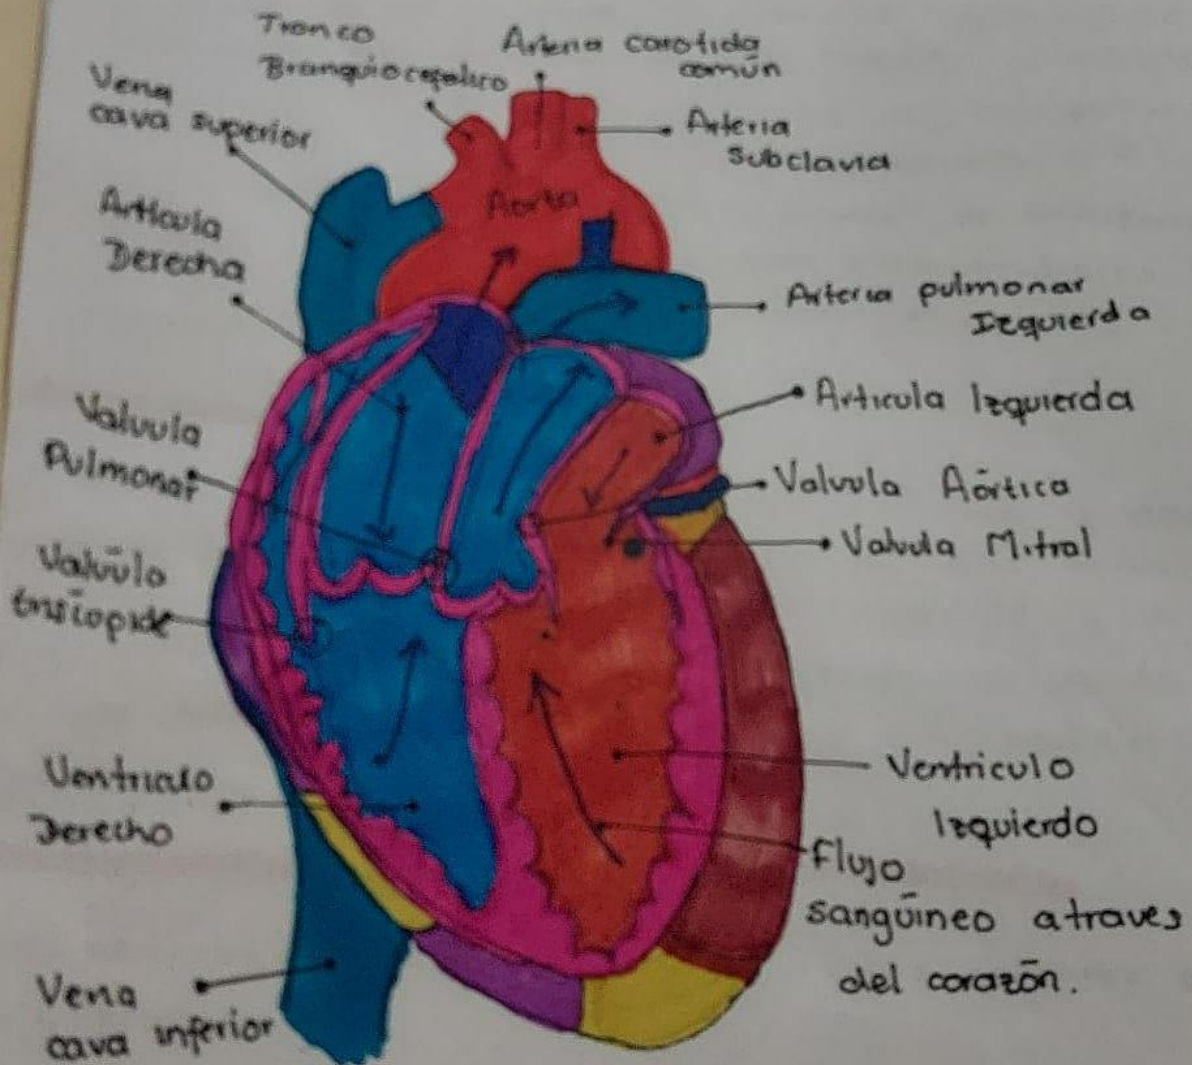 Tronco
Branquiocefalico
Arteria carotida
común
Vena
cava superior
Arteria
Subclavia
Aorta
Artícula
Derecha
Arteria pulmonar
Izquierda
Articula Izquierda
Valvula
Pulmonar
Valvula Aórtica
Valvula Mitral
Valvúla
trisiopide
Ventriculo
Derecho
Ventriculo
Izquierdo
Flujo
sangüineo atraves
del corazón.
Vena
cava inferior